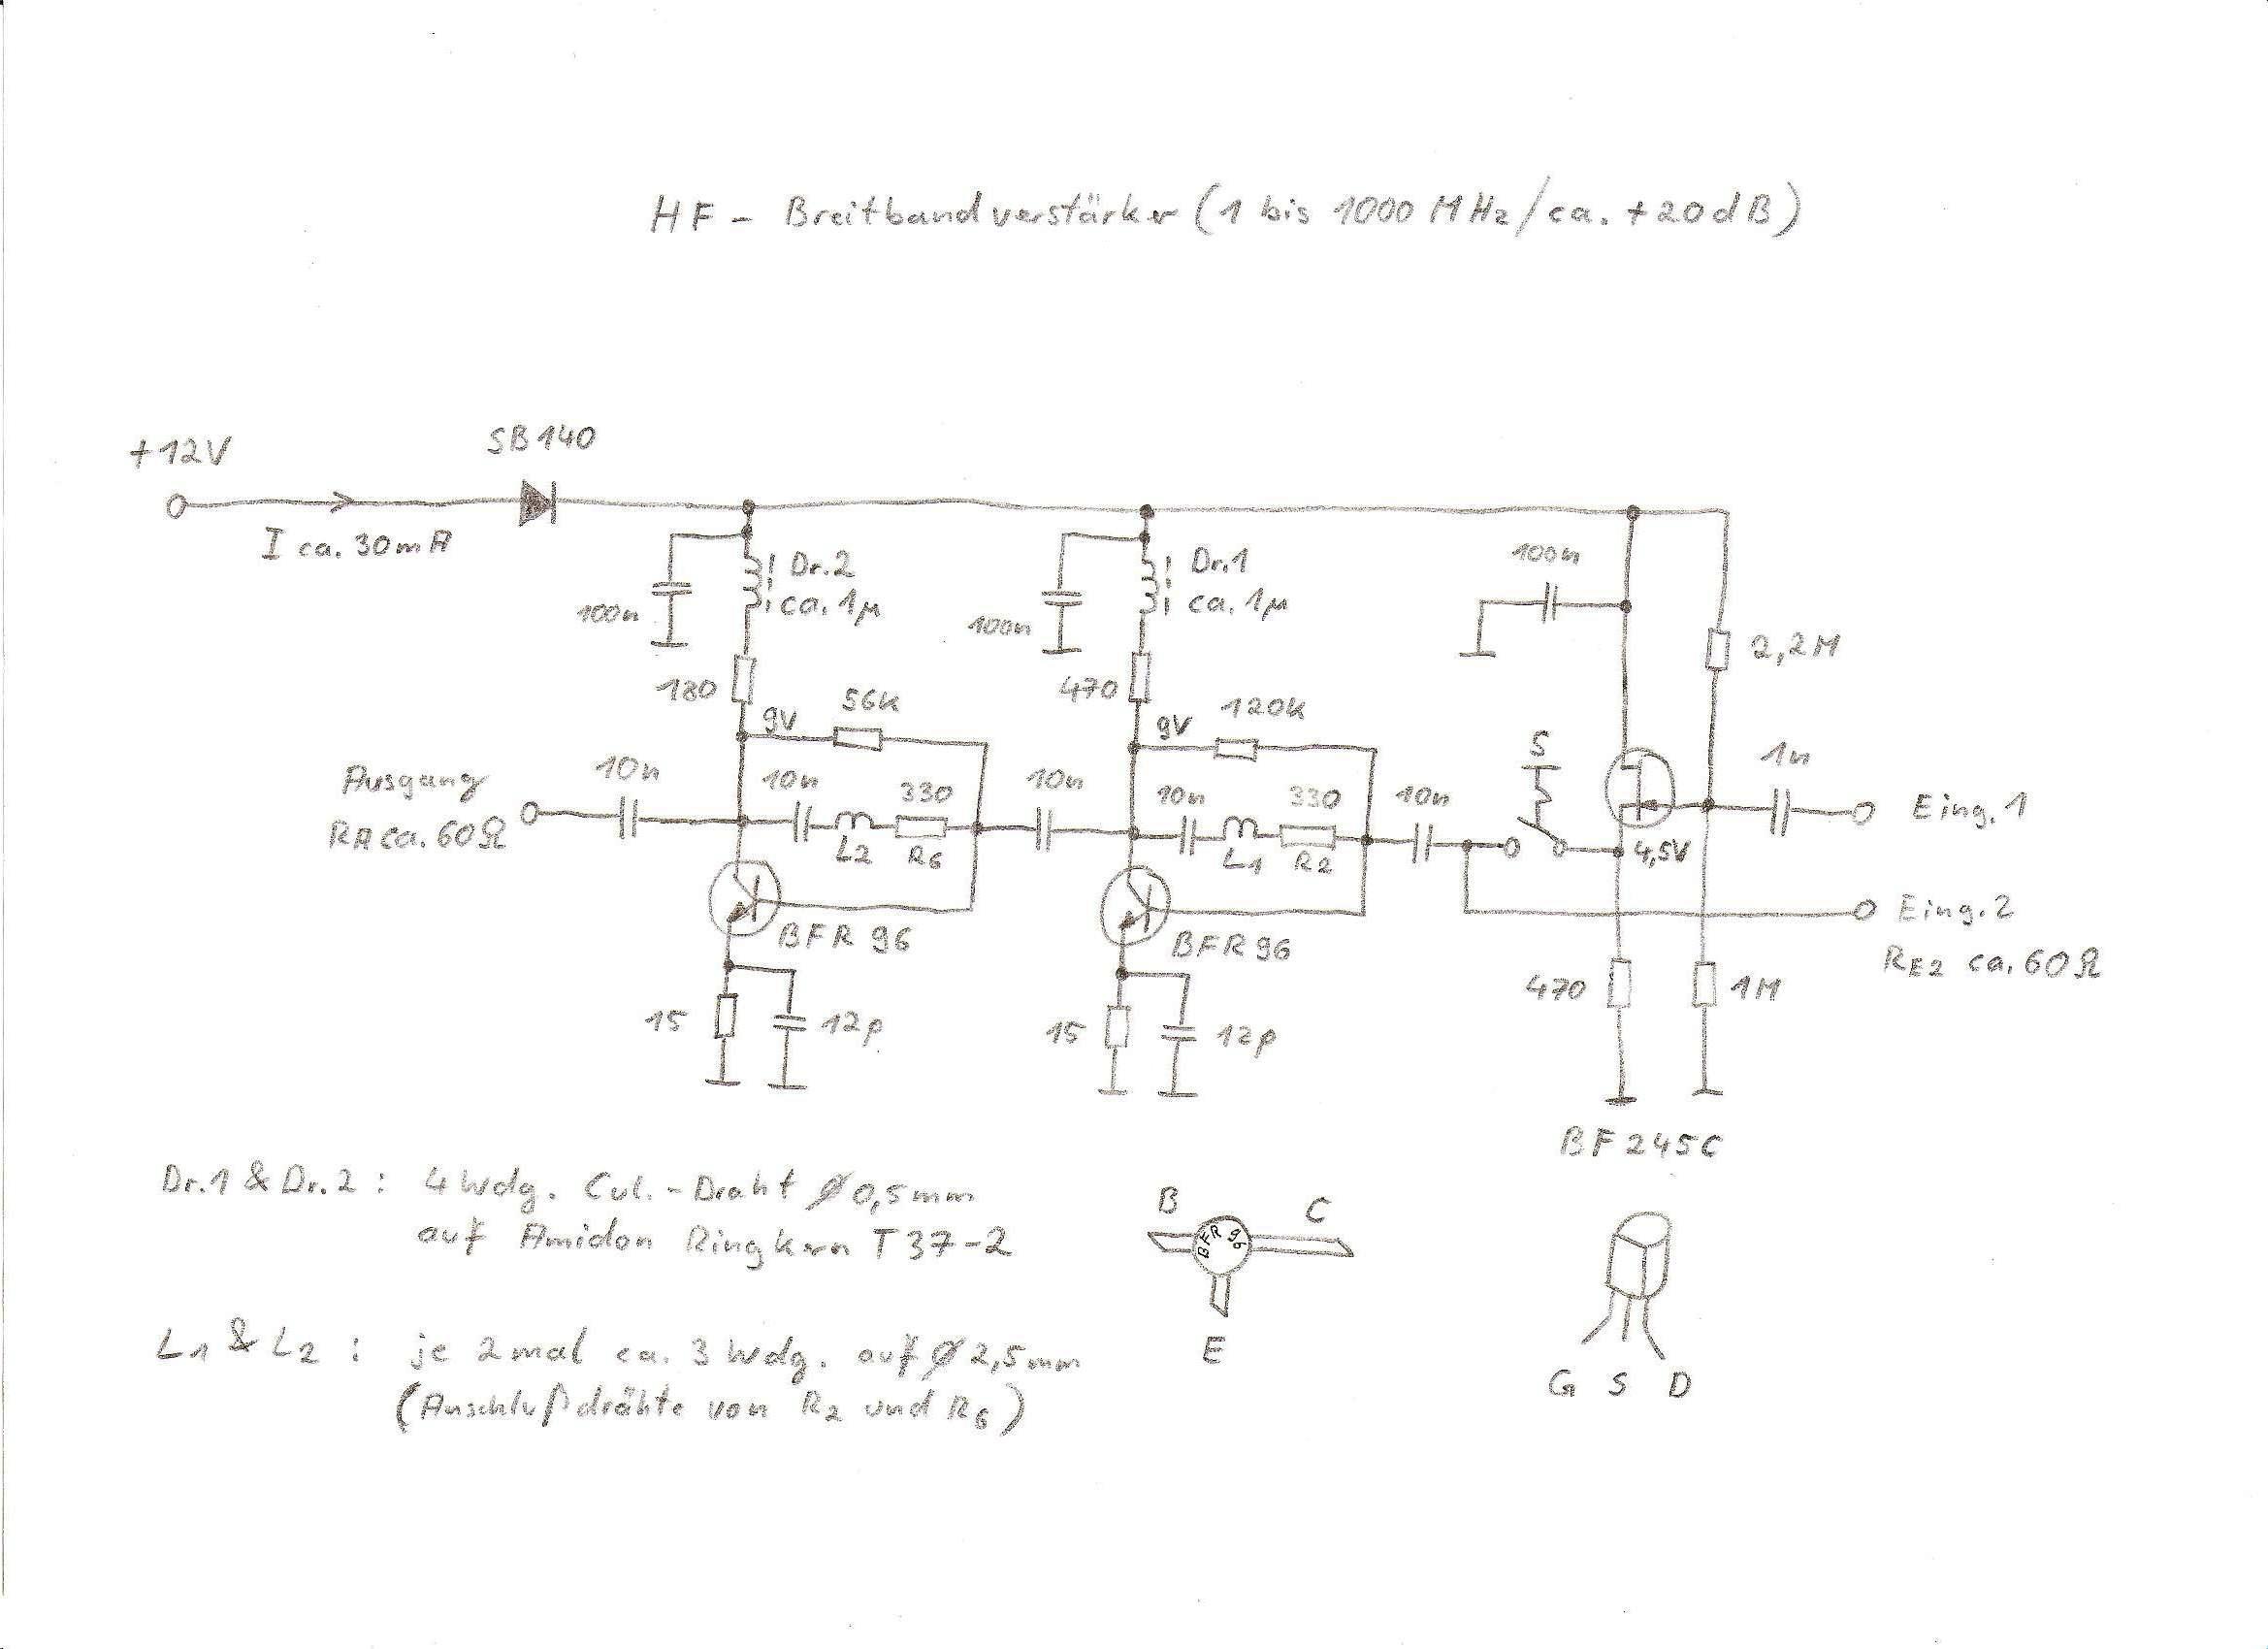 HF - Breitbandverstärker (1 bis 1000 MHz/ca. +20dB)
+12V
SB140
I ca. 30mA
100n
Dr.2
ca. 1µ
100n
Dr.1
ca. 1µ
100n
2,2M
180
9V
56K
470
9V
120K
S
1n
Ausgang
RA ca. 60Ω
10n
10n
L2
330
R6
10n
10n
L1
330
R2
10n
4,5V
Eing.1
BFR 96
BFR 96
Eing.2
RE2 ca. 60Ω
15
12p
15
12p
470
1M
BF 245C
Dr.1 & Dr.2 : 4 Wdg. CuL.-Draht ø 0,5mm
auf Amidon Ringkern T 37-2
B
C
BFR 96
E
L1 & L2 : je 2mal ca. 3 Wdg. auf ø 2,5mm
(Anschlußdrähte von R2 und R6)
G S D